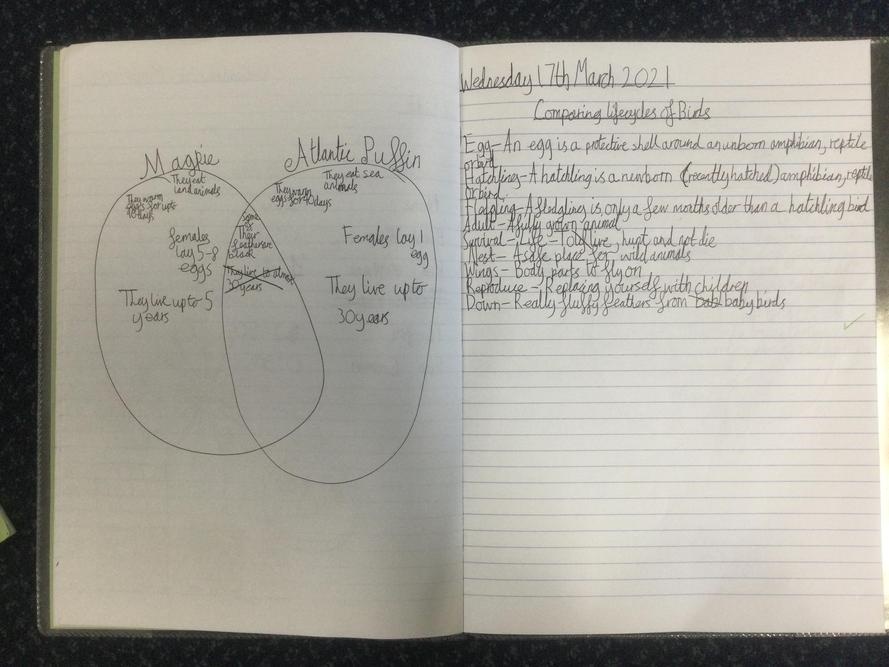 Magpie
They eat
land animals
They warm
eggs for up to
days
females
lay 5-8
eggs
They live up to 5
years
Some
of
Their
feathers are
black
They live to almost
30 years
Atlantic Puffin
They eat sea
animals
They warm
eggs for 40 days
Females lay 1
egg
They live up to
30 years
Wednesday 17th March 2021
Comparing lifecycles of Birds
Egg- An egg is a protective shell around an unborn amphibian, reptile
or bird
Hatchling- A hatchling is a newborn (recently hatched) amphibian, reptile
or bird.
Fledgling- A fledgling is only a few months older than a hatchling bird
Adult- A fully grown animal
Survival- Life - To live, hunt and not die
Nest- A safe place for wild animals
Wings- Body parts to fly on
Reproduce - Replacing yourself with children
Down- Really fluffy feathers from baby birds